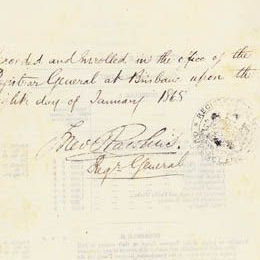 corded and Enrolled in the office of the
gistrar General at Brisbane upon the
day of January 1865
Regr General